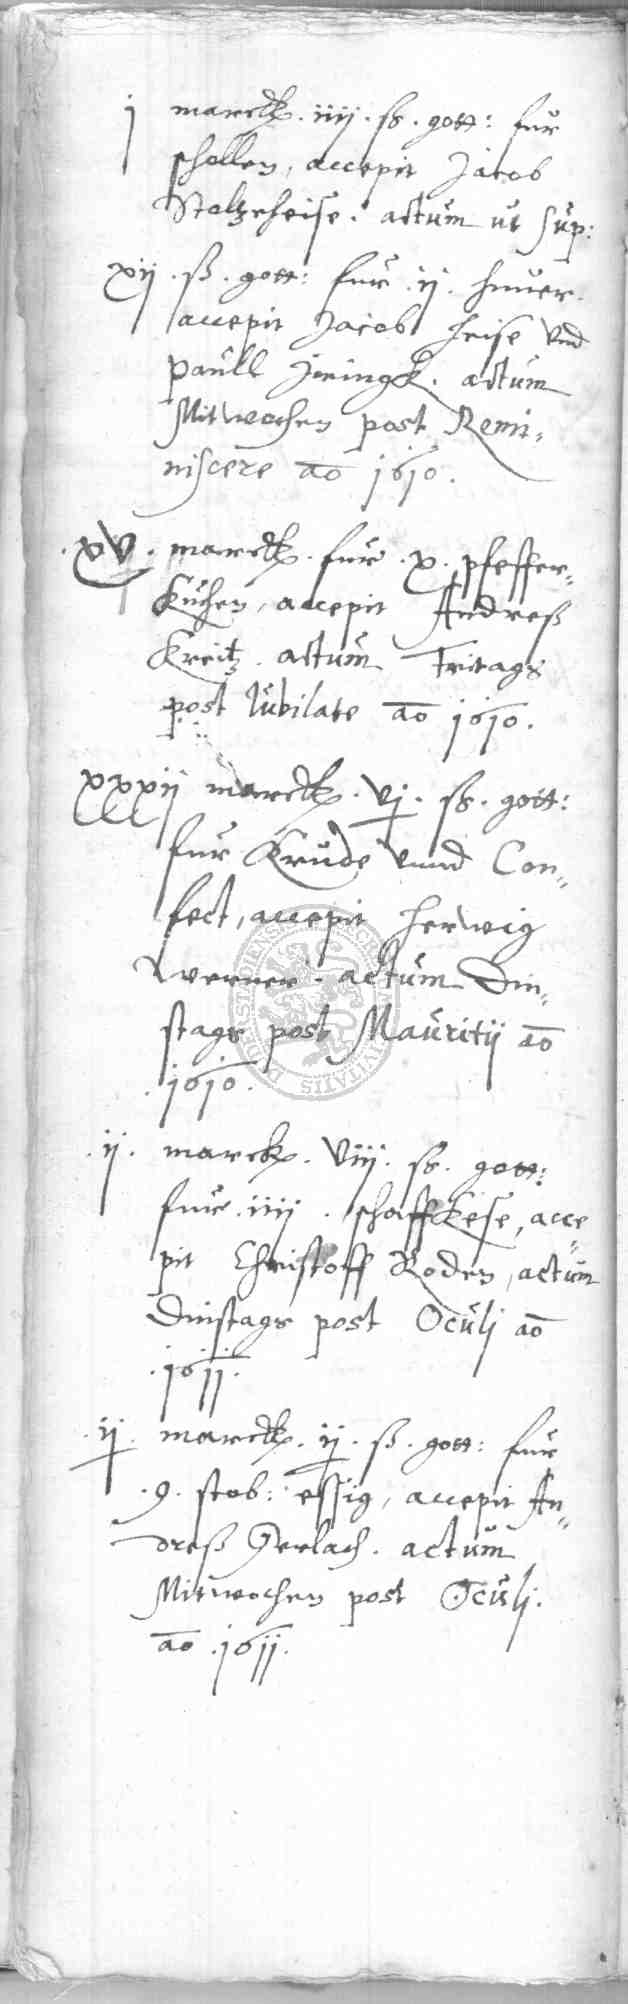 j marck. iiij. ß. gott: fur
schollen, accepit Jacob
Stoltzeheise. actum ut sup:
xij. ß. gott: fur .ij. huner.
accepit Jacob heise vnd
paull Jeringk. actum
Mitwochen post Remi=
niscere ao 1610.
.xv. marck. fur .x. pfeffer=
kuchen, accepit Andreß
Kreitz. actum Fritags
post Iubilate ao 1610.
xxxij marck. vj. ß. gott:
fur Krude vnnd Con=
fect, accepit herwig
Werner. actum Din=
stags post Mauritij ao
.1610.
.ij. marck. viij. ß. gott:
fur .iiij. schaffkese, acce=
pit Christoff Roden, actum
Dinstags post Oculj ao
.1611.
.ij. marck. ij. ß. gott: fur
.9. stob: essig, accepit An=
dreß Gerlach. actum
Mitwochen post Oculj.
ao .1611.